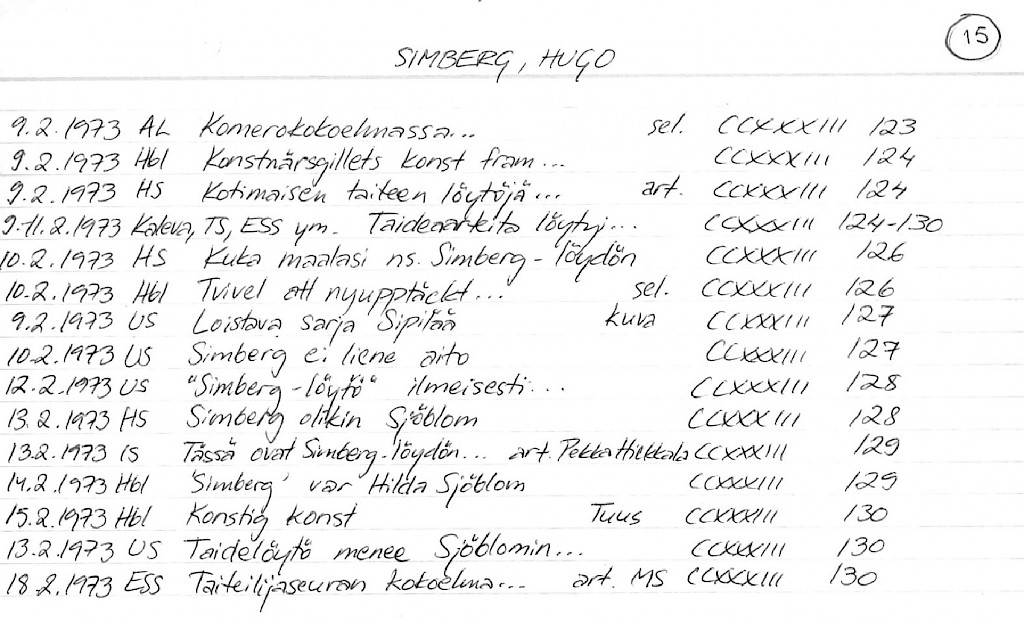 15
SIMBERG, HUGO
9.2.1973 AL Komerokokoelmassa... sel. CCXXXIII 123
9.2.1973 Hbl Konstnärsgillets konst fram... CCXXXIII 124
9.2.1973 HS Kotimaisen taiteen löytöjä... art. CCXXXIII 124
9.-11.2.1973 Kaleva, TS, ESS ym. Taideaarteita löytyi... CCXXXIII 124-130
10.2.1973 HS Kuka maalasi ns. Simberg-löydön CCXXXIII 126
10.2.1973 Hbl Tvivel att nyupptäckt... sel. CCXXXIII 126
9.2.1973 US Loistava sarja Sipilää kuva CCXXXIII 127
10.2.1973 US Simberg ei liene aito CCXXXIII 127
12.2.1973 US "Simberg-löytö" ilmeisesti... CCXXXIII 128
13.2.1973 HS Simberg olikin Sjöblom CCXXXIII 128
13.2.1973 IS Tässä ovat Simberg-löydön... art. Pekka Hiekkala CCXXXIII 129
14.2.1973 Hbl 'Simberg' var Hilda Sjöblom CCXXXIII 129
15.2.1973 Hbl Konstig konst Tuus CCXXXIII 130
13.2.1973 US Taidelöytö menee Sjöblomin... CCXXXIII 130
18.2.1973 ESS Taiteilijaseuran kokoelma... art. MS CCXXXIII 130